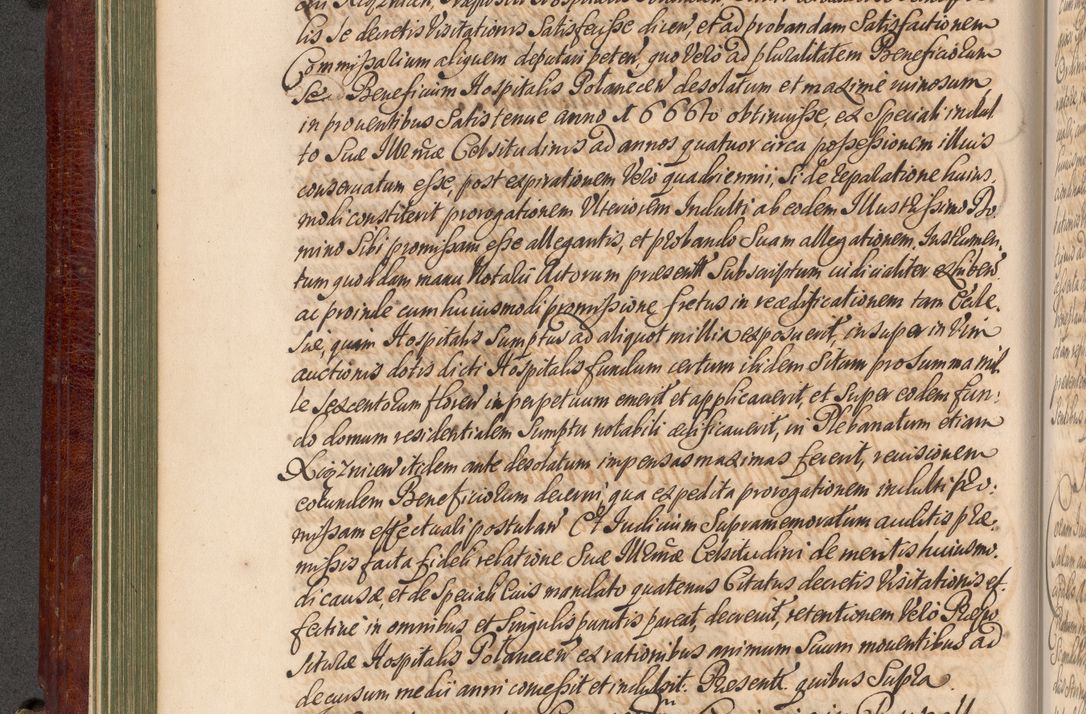 lis se decretis Visitationis Satisfecisse dicen, et ad probandam Satisfactionem
Commissalium aliquem deputari peten, quo Vero ad pluralitatem Beneficiorum
se Beneficium Hospitalis Polanecen desolatum et maxime ruinosum
in prouentibus Satis tenue anno 1666to obtinuisse, ex Speciali indul
to Suæ Illrmæ Celsitudinis ad annos quatuor circa possessionem illius
conseruatum esse, post expirationem Vero quadriennii, Si de reparatione huius,
modi constiterit prorogationem Vlteriorem Indulti ab eodem Illustrissimo Do
mino Sibi promissam esse allegantis, et probando Suam allegationem, Instrumen,
tum quoddam manu Notarii Actorum present Subscriptum iudicialiter exhuben
ac proinde cum huiusmodi promissione fretus in reædificationem tam Eccle.
siæ, quam Hospitalis Sumptus ad aliquot millia exposuerit, insuper in Vim
auctionis dotis dicti Hospitalis fundum certum ibidem Situm pro summa mil
le Sexcentorum floren in perpetuum emerit et applicauerit, et Super eodem fun:
do domum residentialem Sumptu notabili ædificauerit, in Plebanatum etiam
Xiąznicen itidem ante desolatum impensas maximas fecerit, reuisionem
eorundem Beneficiorum decerni, qua expedita prorogationem indulti pro:
missam effectuali postulan Et Iudicium Supramemoratum auditis præ
missis facta fideli relatione Suæ Illrmæ Celsitudini de meritis huiusmo.
di causæ, et de Speciali Eius mandato quatenus Citatus decretis Visitationis ef.
fectiue in omnibus et Singulis punctis pareat, decreuit, retentionem Vero Præpo
situræ Hospitalis Polanecen ex rationibus animum Suum mouentibus ad
decursum medii anni concessit et indulsit. Presente quibus Supra.